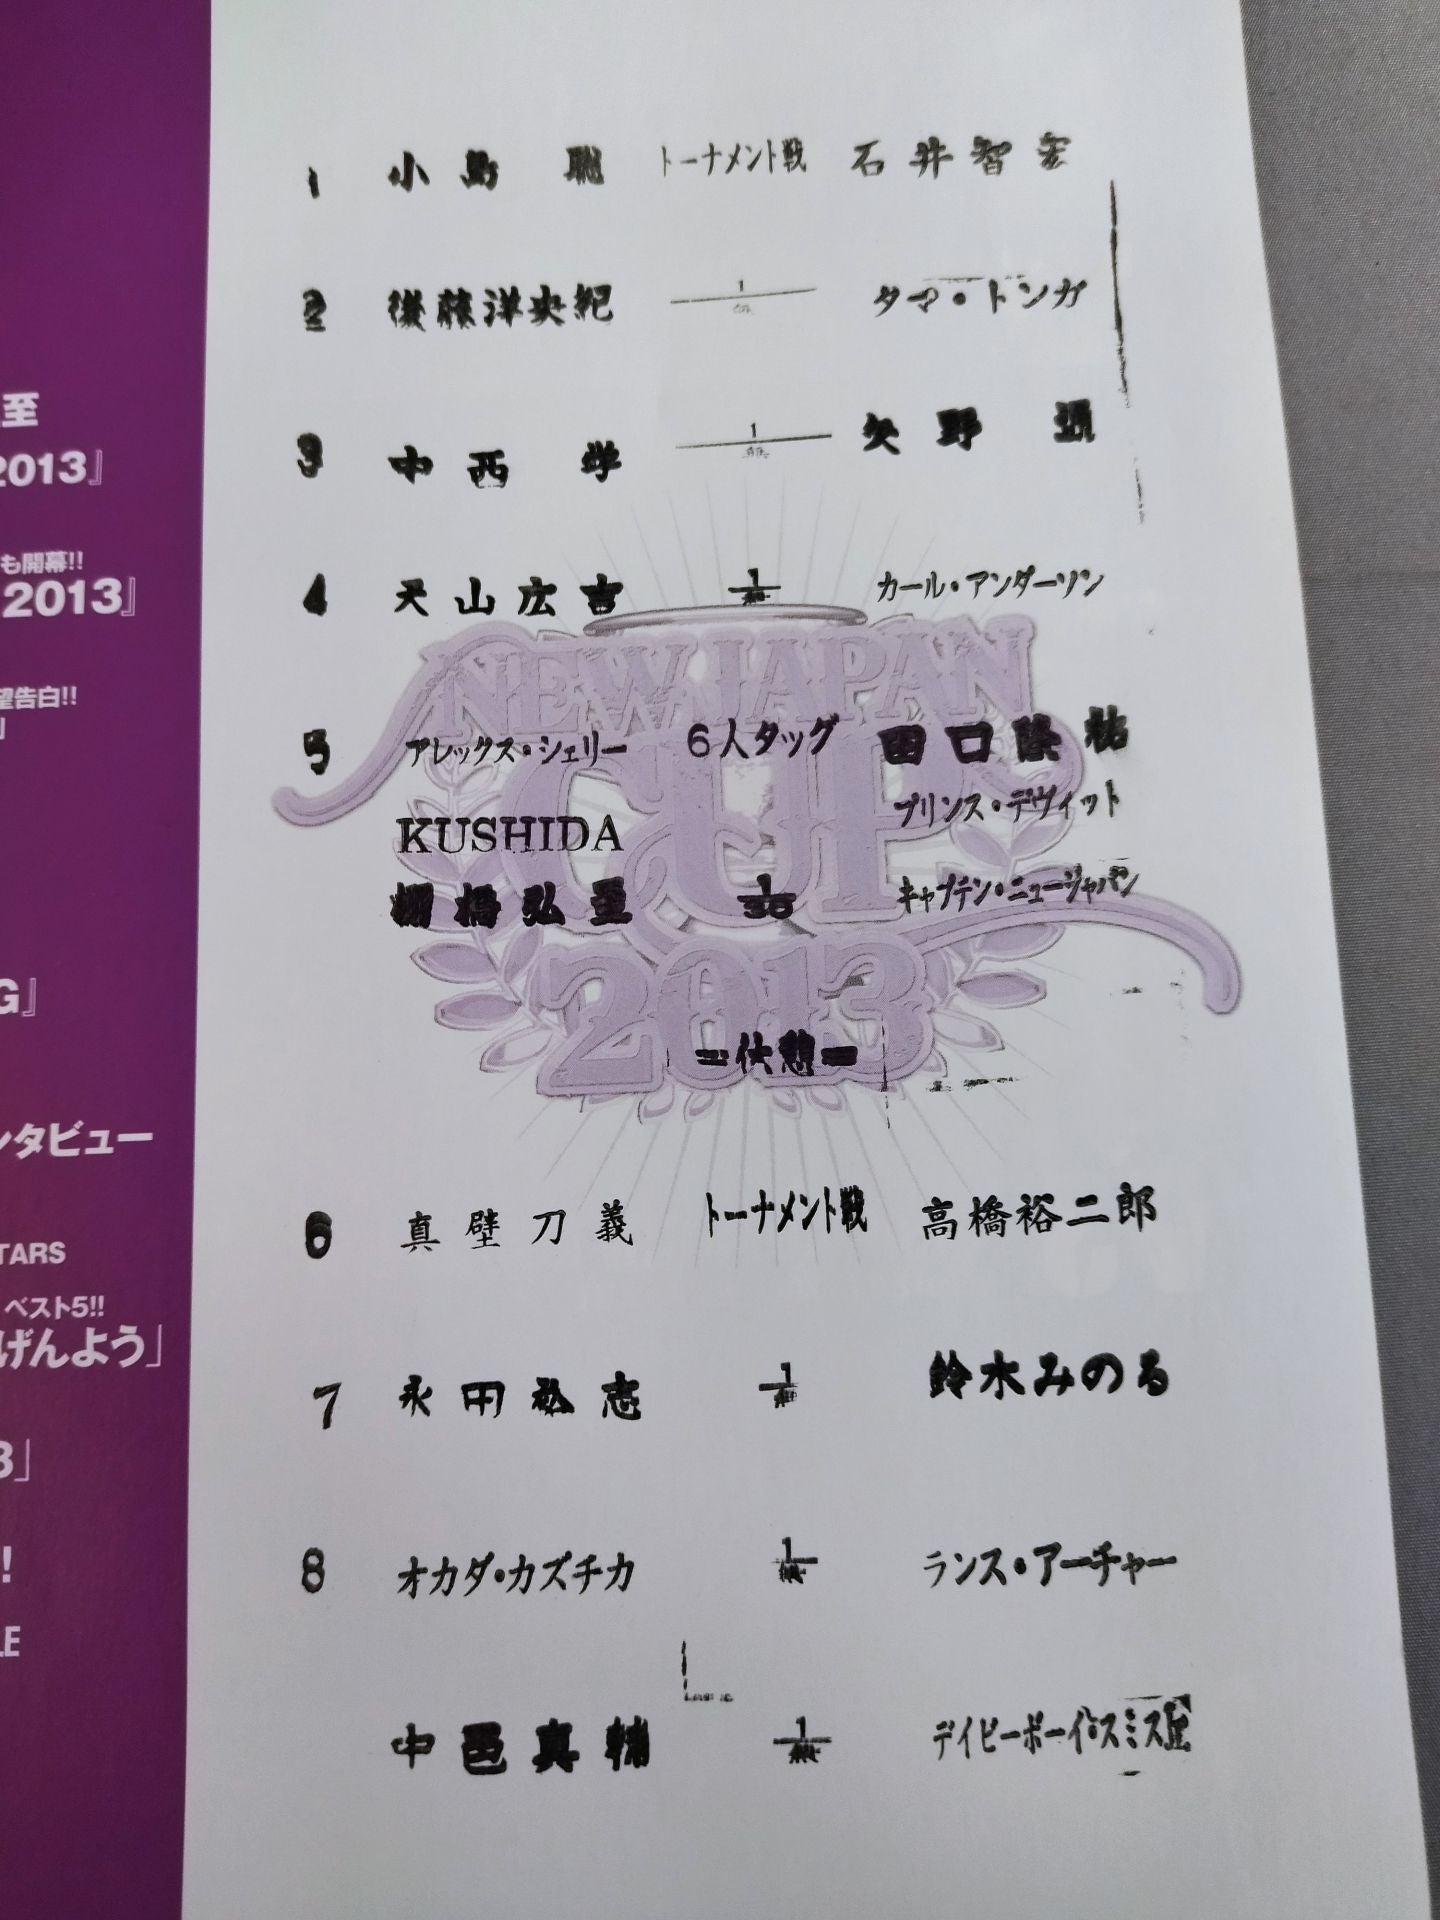 至
2013』
も開幕!!
2013』
望告白!!
」
G』
ンタビュー
TARS
ベスト5!!
げんよう」
3」
!
LE
1 小島 聡 トーナメント戦 石井智宏
2 後藤洋央紀 1 タマ・トンガ
3 中西 学 1 矢野 通
4 天山広吉 1 カール・アンダーソン
NEW JAPAN
CUP
2013
5 アレックス・シェリー 6人タッグ 田口隆祐
プリンス・デヴィット
KUSHIDA
棚橋弘至 1/30 キャプテン・ニュージャパン
=休憩=
6 真壁刀義 トーナメント戦 高橋裕二郎
7 永田裕志 1 鈴木みのる
8 オカダ・カズチカ 1 ランス・アーチャー
中邑真輔 1 デイビーボーイ・スミス